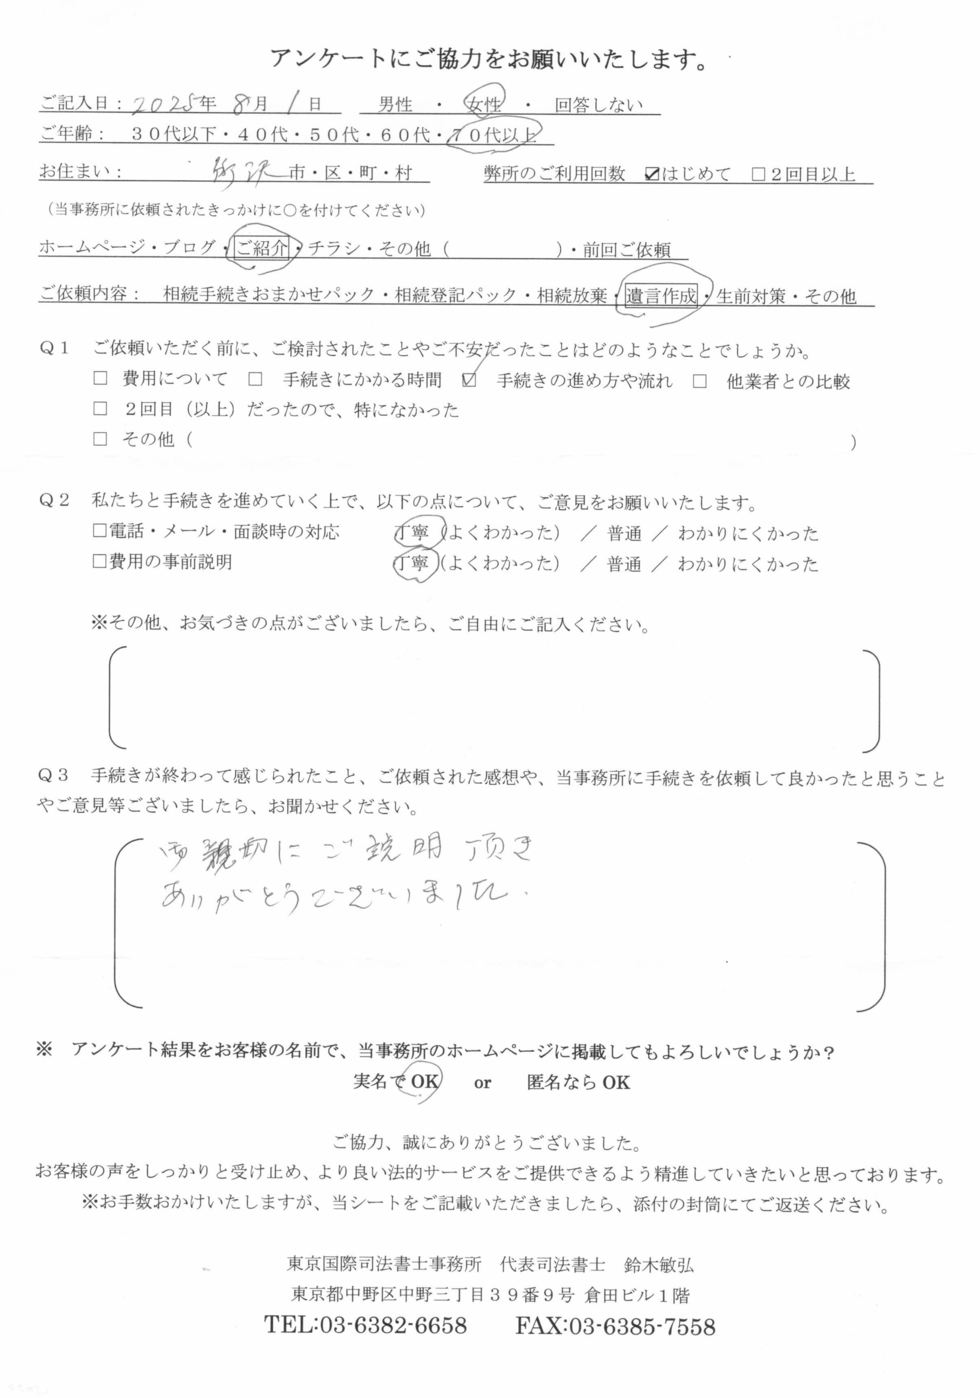 アンケートにご協力をお願いいたします。
ご記入日： 2025年 8月 1日 男性 ・ 女性 ・ 回答しない
ご年齢： 30代以下・40代・50代・60代・70代以上
お住まい： 所沢 市・区・町・村 弊所のご利用回数 ☑はじめて □2回目以上
（当事務所に依頼されたきっかけに○を付けてください）
ホームページ・ブログ・ご紹介・チラシ・その他（ ）・前回ご依頼
ご依頼内容： 相続手続きおまかせパック・相続登記パック・相続放棄・遺言作成・生前対策・その他
Q1 ご依頼いただく前に、ご検討されたことやご不安だったことはどのようなことでしょうか。
□ 費用について □ 手続きにかかる時間 ☑ 手続きの進め方や流れ □ 他業者との比較
□ 2回目（以上）だったので、特になかった
□ その他（ ）
Q2 私たちと手続きを進めていく上で、以下の点について、ご意見をお願いいたします。
□電話・メール・面談時の対応 丁寧（よくわかった） ／ 普通 ／ わかりにくかった
□費用の事前説明 丁寧（よくわかった） ／ 普通 ／ わかりにくかった
※その他、お気づきの点がございましたら、ご自由にご記入ください。
Q3 手続きが終わって感じられたこと、ご依頼された感想や、当事務所に手続きを依頼して良かったと思うこと
やご意見等ございましたら、お聞かせください。
御親切にご説明頂き
ありがとうございました.
※ アンケート結果をお客様の名前で、当事務所のホームページに掲載してもよろしいでしょうか？
実名でOK or 匿名ならOK
ご協力、誠にありがとうございました。
お客様の声をしっかりと受け止め、より良い法的サービスをご提供できるよう精進していきたいと思っております。
※お手数おかけいたしますが、当シートをご記載いただきましたら、添付の封筒にてご返送ください。
東京国際司法書士事務所 代表司法書士 鈴木敏弘
東京都中野区中野三丁目39番9号 倉田ビル1階
TEL:03-6382-6658 FAX:03-6385-7558